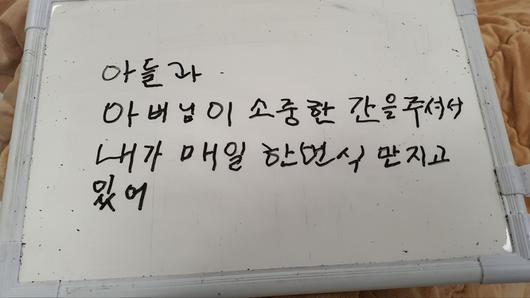 아들과
아버님이 소중한 간을주셔서
내가 매일 한번식 만지고
있어